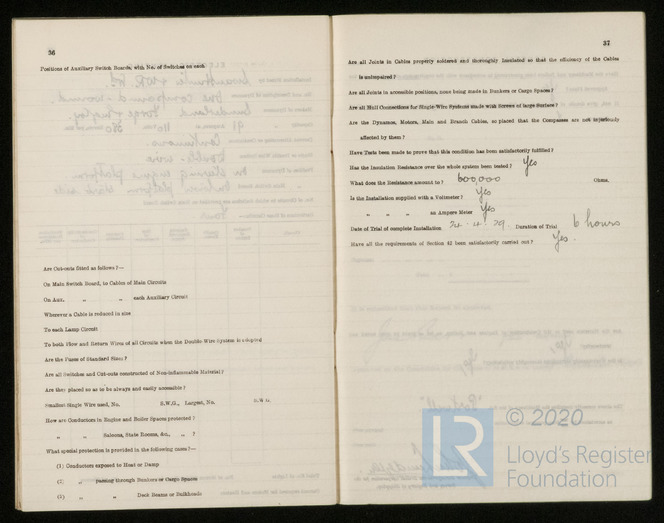 36
Positions of Auxiliary Switch Boards, with No. of Switches on each
Are Cut-outs fitted as follows?—
On Main Switch Board, to Cables of Main Circuits
On Aux. „ „ each Auxiliary Circuit
Wherever a Cable is reduced in size
To each Lamp Circuit
To both Flow and Return Wires of all Circuits when the Double Wire System is adopted
Are the Fuses of Standard Sizes?
Are all Switches and Cut-outs constructed of Non-inflammable Material?
Are they placed so as to be always and easily accessible?
Smallest Single Wire used, No. S.W.G., Largest, No. S.W.G.
How are Conductors in Engine and Boiler Spaces protected?
„ „ Saloons, State Rooms, &c., „ ?
What special protection is provided in the following cases?—
(1) Conductors exposed to Heat or Damp
(2) „ passing through Bunkers or Cargo Spaces
(3) „ „ Deck Beams or Bulkheads
37
Are all Joints in Cables properly soldered and thoroughly insulated so that the efficiency of the Cables
is unimpaired?
Are all Joints in accessible positions, none being made in Bunkers or Cargo Spaces?
Are all Hull Connections for Single-Wire Systems made with Screws of large Surface?
Are the Dynamos, Motors, Main and Branch Cables, so placed that the Compasses are not injuriously
affected by them?
Have Tests been made to prove that this condition has been satisfactorily fulfilled?
Has the Insulation Resistance over the whole system been tested? Yes
What does the Resistance amount to? 600,000 Ohms.
Is the Installation supplied with a Voltmeter? Yes
„ „ „ an Ampere Meter Yes
Date of Trial of complete Installation 24.4.29. Duration of Trial 6 hours
Have all the requirements of Section 42 been satisfactorily carried out? Yes.
LR
© 2020
Lloyd's Register
Foundation